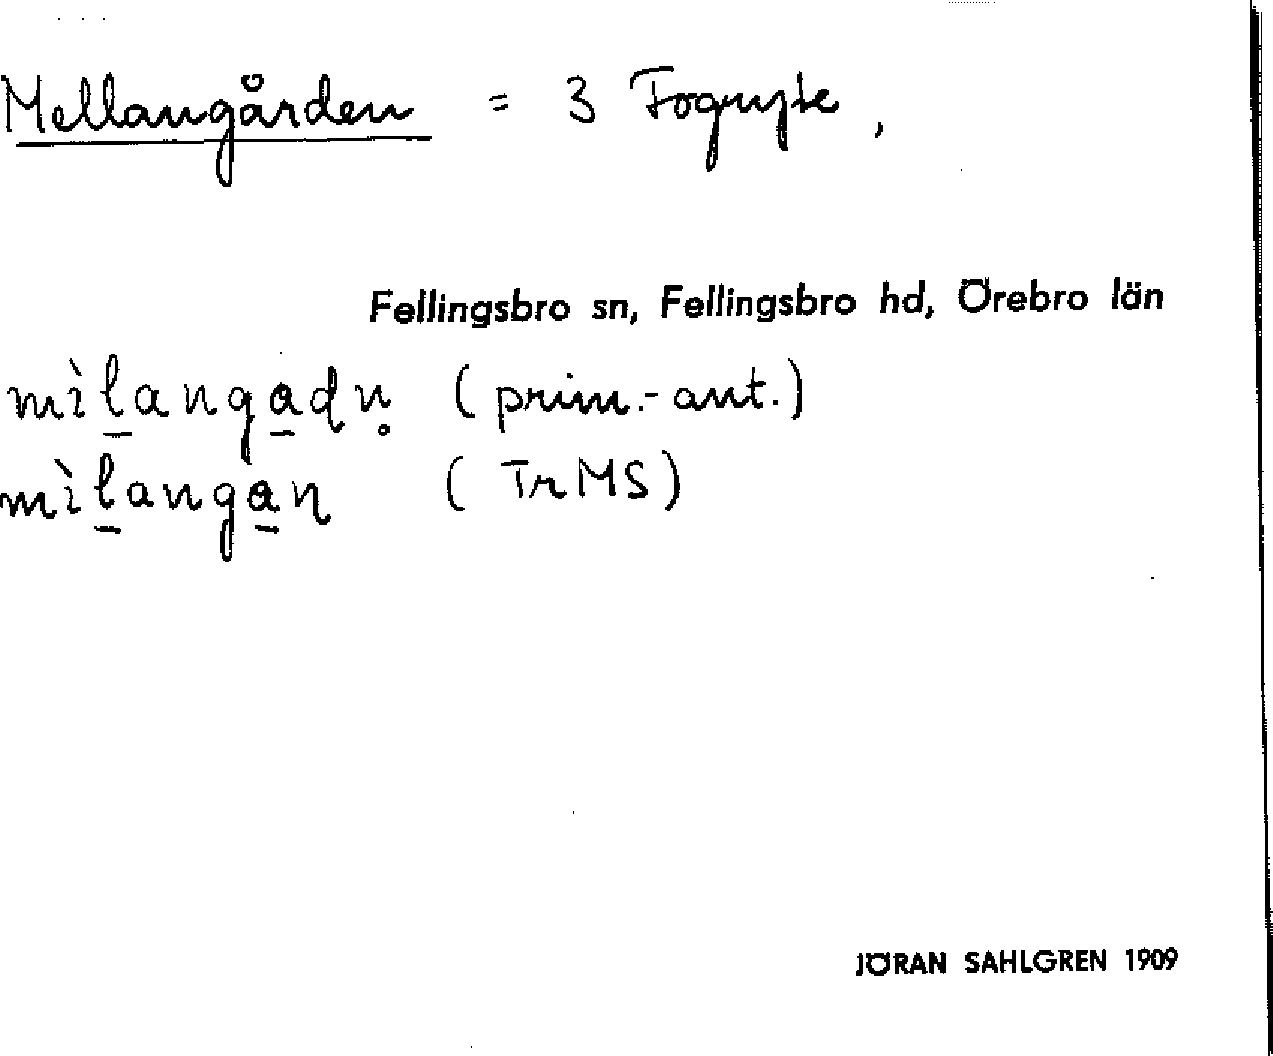 Mellangården = 3 Fogmyte,
Fellingsbro sn, Fellingsbro hd, Örebro län
mìl̲anga̲dn̥ (prim.-ant.)
mìl̲anga̲n (TrMS)
JÖRAN SAHLGREN 1909